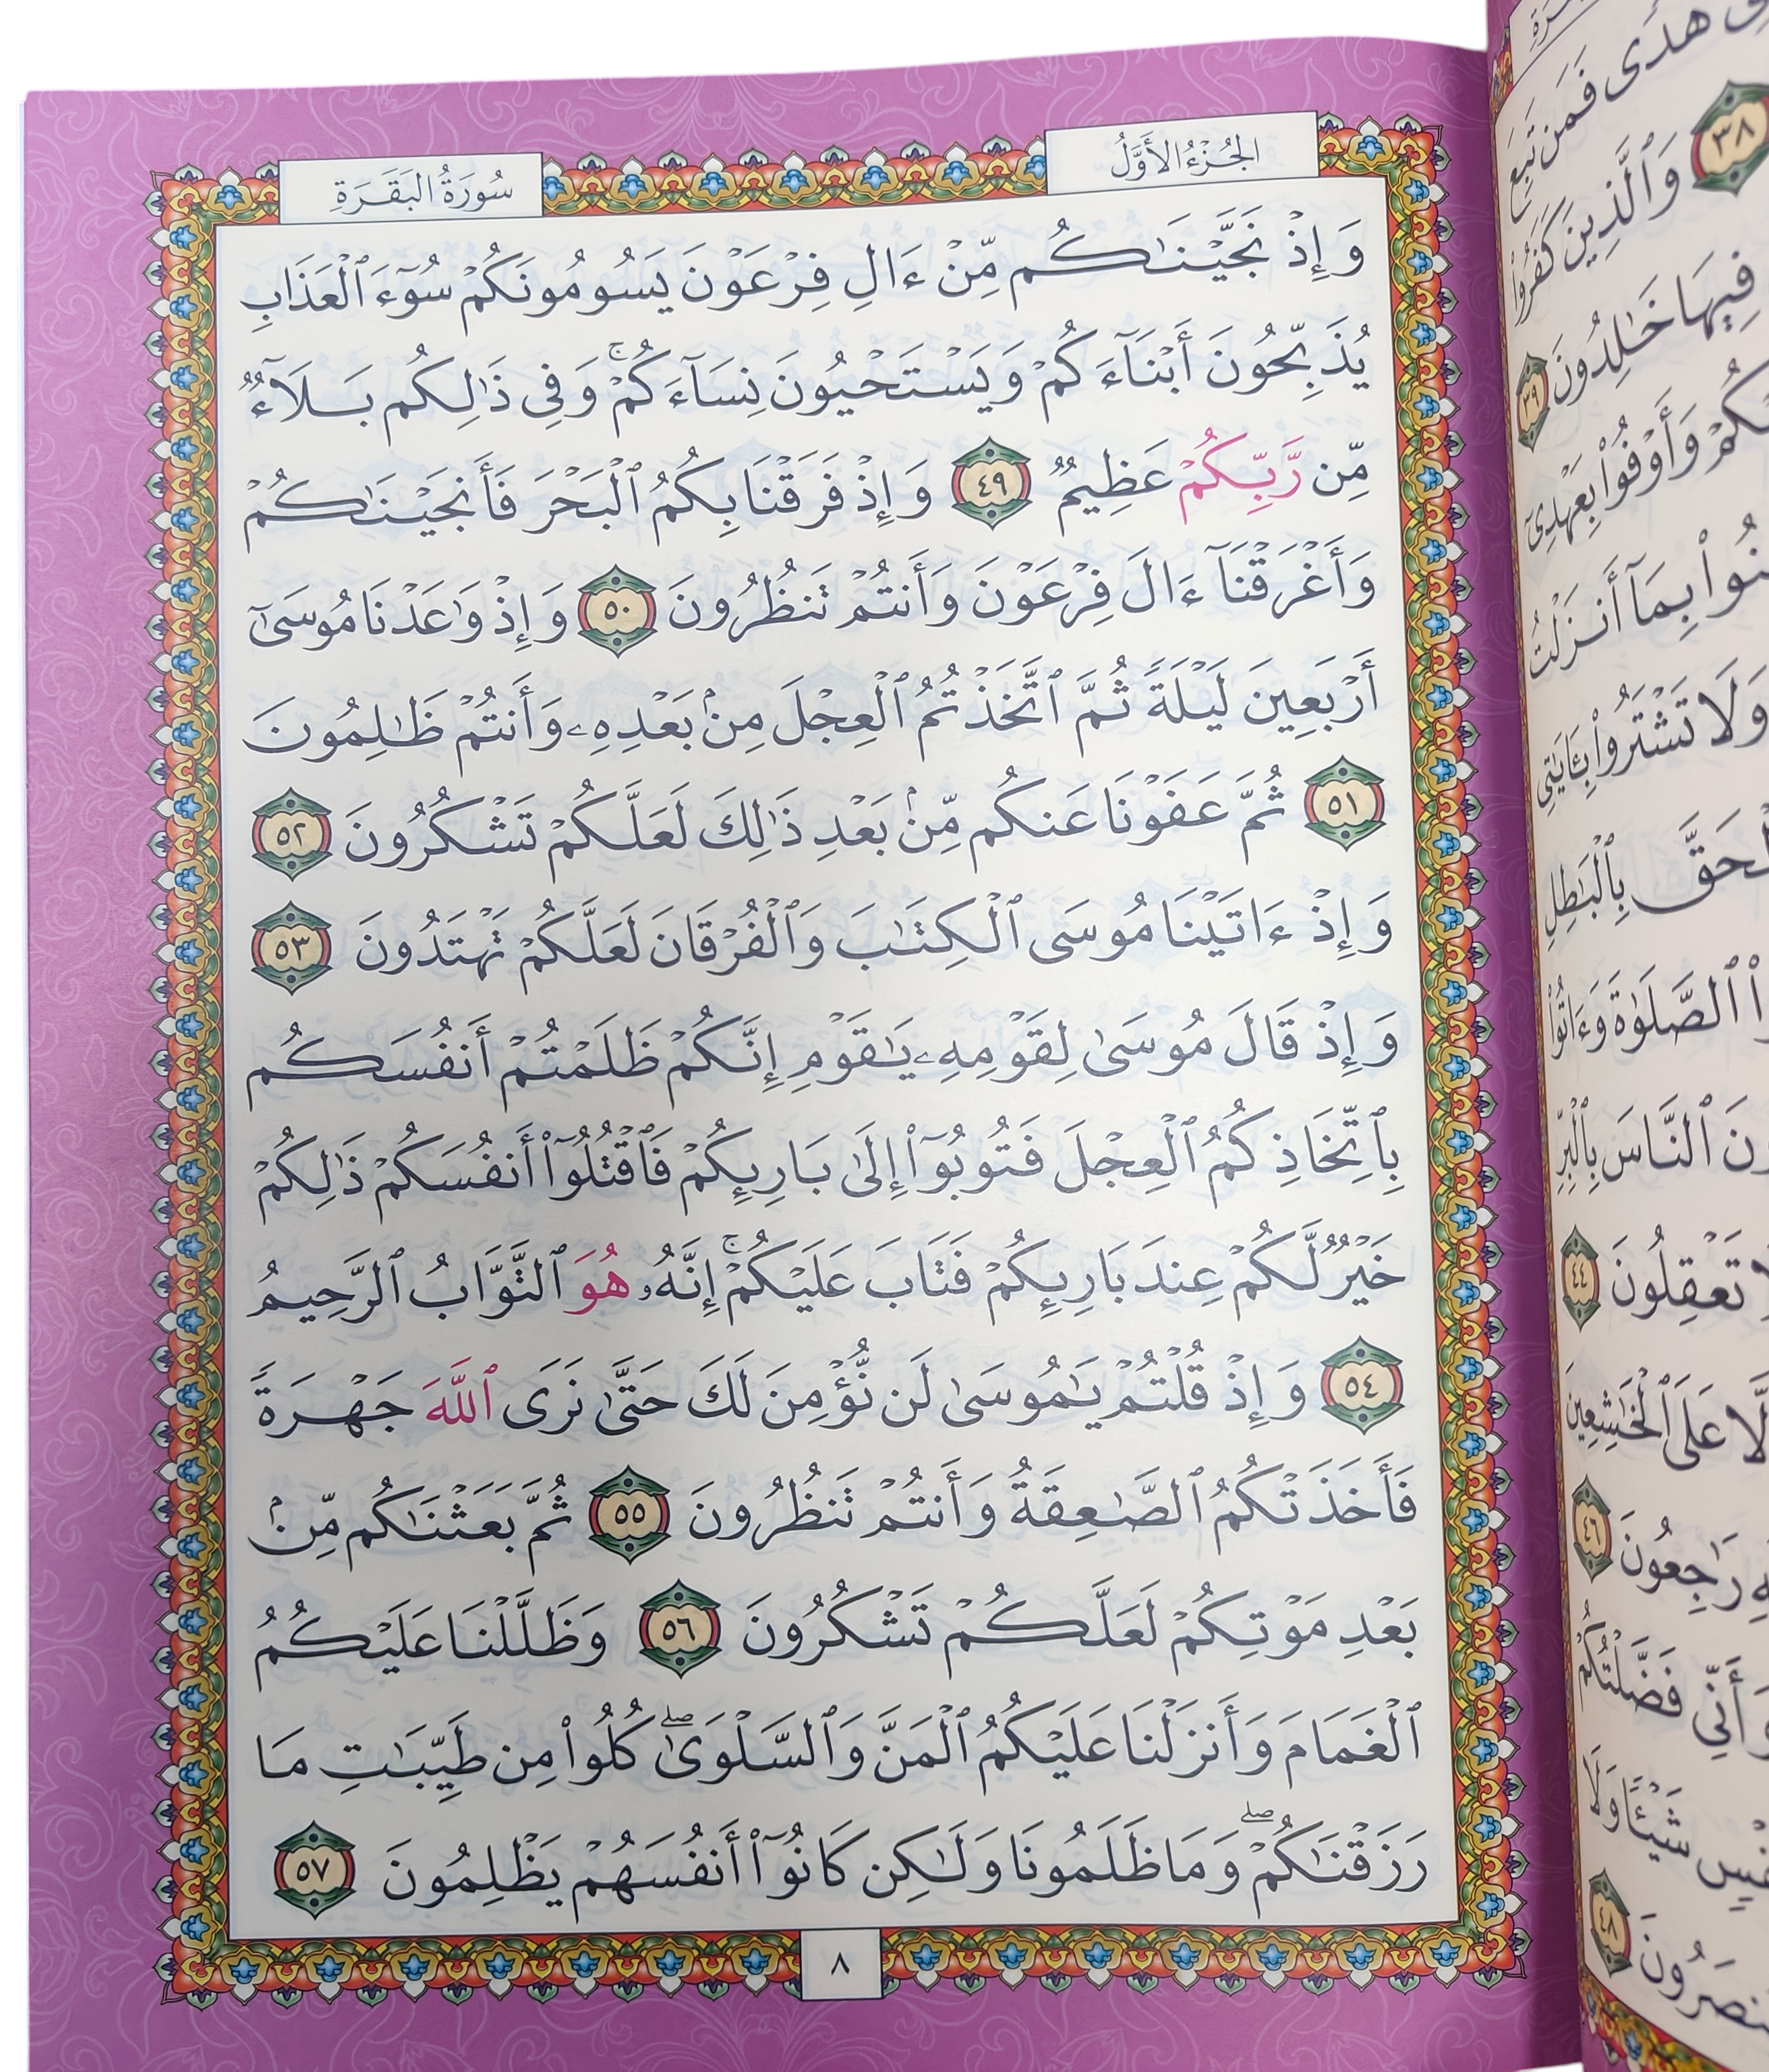 الجُزْءُ الأَوَّلُ
سُورَةُ البَقَرَةِ
وَإِذْ نَجَّيْنَـٰكُم مِّنْ ءَالِ فِرْعَوْنَ يَسُومُونَكُمْ سُوٓءَ ٱلْعَذَابِ
يُذَبِّحُونَ أَبْنَآءَكُمْ وَيَسْتَحْيُونَ نِسَآءَكُمْ ۚ وَفِى ذَٰلِكُم بَلَآءٌ
مِّن رَّبِّكُمْ عَظِيمٌ ٤٩ وَإِذْ فَرَقْنَا بِكُمُ ٱلْبَحْرَ فَأَنجَيْنَـٰكُمْ
وَأَغْرَقْنَآ ءَالَ فِرْعَوْنَ وَأَنتُمْ تَنظُرُونَ ٥٠ وَإِذْ وَٰعَدْنَا مُوسَىٰٓ
أَرْبَعِينَ لَيْلَةً ثُمَّ ٱتَّخَذْتُمُ ٱلْعِجْلَ مِنۢ بَعْدِهِۦ وَأَنتُمْ ظَـٰلِمُونَ
٥١ ثُمَّ عَفَوْنَا عَنكُم مِّنۢ بَعْدِ ذَٰلِكَ لَعَلَّكُمْ تَشْكُرُونَ ٥٢
وَإِذْ ءَاتَيْنَا مُوسَى ٱلْكِتَـٰبَ وَٱلْفُرْقَانَ لَعَلَّكُمْ تَهْتَدُونَ ٥٣
وَإِذْ قَالَ مُوسَىٰ لِقَوْمِهِۦ يَـٰقَوْمِ إِنَّكُمْ ظَلَمْتُمْ أَنفُسَكُم
بِٱتِّخَاذِكُمُ ٱلْعِجْلَ فَتُوبُوٓا۟ إِلَىٰ بَارِئِكُمْ فَٱقْتُلُوٓا۟ أَنفُسَكُمْ ذَٰلِكُمْ
خَيْرٌ لَّكُمْ عِندَ بَارِئِكُمْ فَتَابَ عَلَيْكُمْ ۚ إِنَّهُۥ هُوَ ٱلتَّوَّابُ ٱلرَّحِيمُ
٥٤ وَإِذْ قُلْتُمْ يَـٰمُوسَىٰ لَن نُّؤْمِنَ لَكَ حَتَّىٰ نَرَى ٱللَّهَ جَهْرَةً
فَأَخَذَتْكُمُ ٱلصَّـٰعِقَةُ وَأَنتُمْ تَنظُرُونَ ٥٥ ثُمَّ بَعَثْنَـٰكُم مِّنۢ
بَعْدِ مَوْتِكُمْ لَعَلَّكُمْ تَشْكُرُونَ ٥٦ وَظَلَّلْنَا عَلَيْكُمُ
ٱلْغَمَامَ وَأَنزَلْنَا عَلَيْكُمُ ٱلْمَنَّ وَٱلسَّلْوَىٰ ۖ كُلُوا۟ مِن طَيِّبَـٰتِ مَا
رَزَقْنَـٰكُمْ ۖ وَمَا ظَلَمُونَا وَلَـٰكِن كَانُوٓا۟ أَنفُسَهُمْ يَظْلِمُونَ ٥٧
٨
هُدًى فَمَن تَبِعَ
٣٨ وَٱلَّذِينَ كَفَرُوا۟
فِيهَا خَـٰلِدُونَ ٣٩
وَأَوْفُوا۟ بِعَهْدِىٓ
بِمَآ أَنزَلْتُ
وَلَا تَشْتَرُوا۟ بِـَٔايَـٰتِى
بِٱلْبَـٰطِلِ
ٱلصَّلَوٰةَ وَءَاتُوا۟
ٱلنَّاسَ بِٱلْبِرِّ
تَعْقِلُونَ ٤٤
عَلَى ٱلْخَـٰشِعِينَ
رَٰجِعُونَ ٤٦
وَأَنِّى فَضَّلْتُكُمْ
شَيْـًٔا وَلَا
٤٨